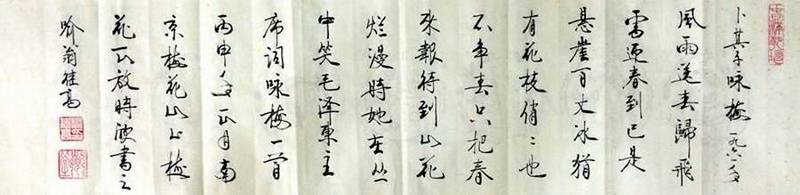 卜算子咏梅 一九六一年
風雨送春歸飛
雪迎春到已是
悬崖百丈冰猶
有花枝俏々也
不争春只把春
來報待到山花
烂漫時她在丛
中笑毛泽東主
席词咏梅一首
丙申年正月南
京梅花山上梅
花正放時書之
翁桂高